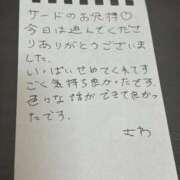 サードのお兄様♡
今日は遊んでくださ
りありがとうございま
した。
いっぱいせめてくれてす
ごく気持ち良かったです。
色々な話ができて良かっ
たです。
さわ